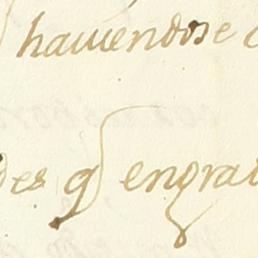 hauiendose
des q engra